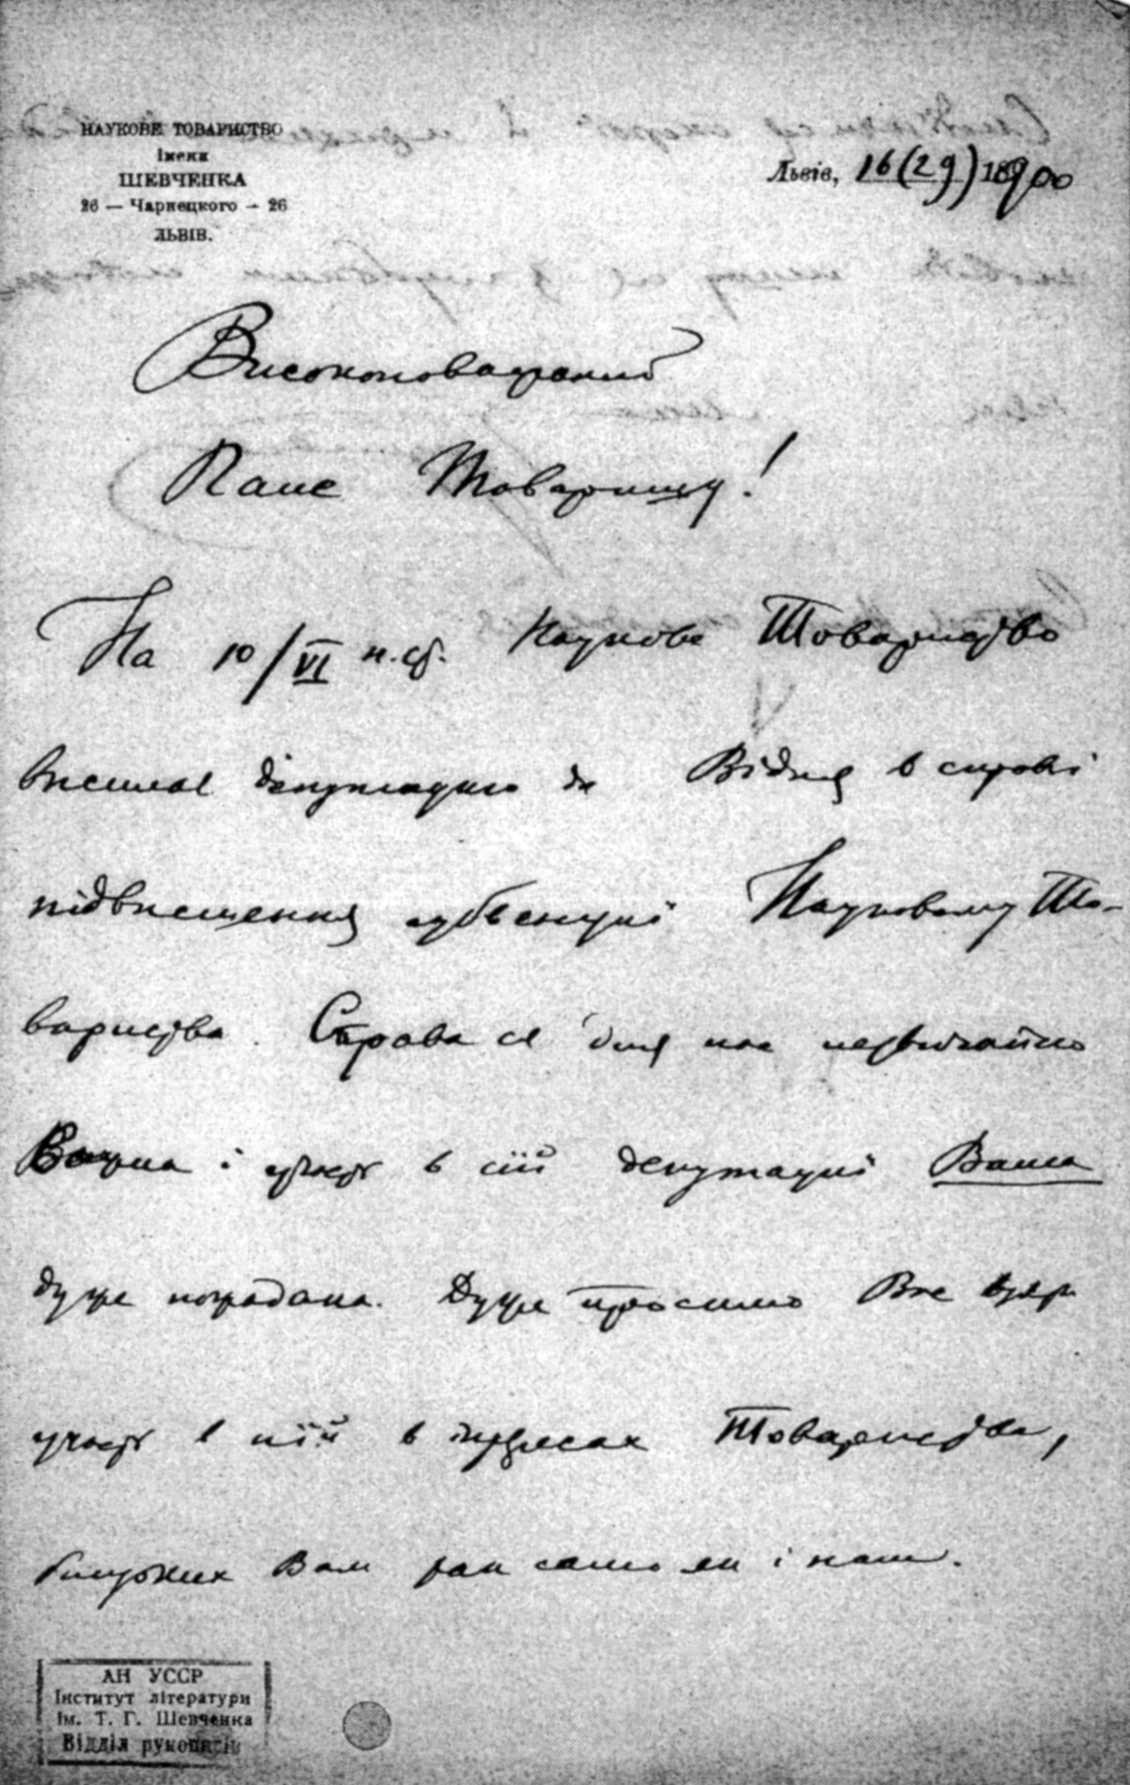 НАУКОВЕ ТОВАРИСТВО
імени
ШЕВЧЕНКА
26 — Чарнецкого — 26
ЛЬВІВ.
Львів, 16 (29) 1900
Високоповажаний
Пане Товаришу!
На 10/VI н.ст. Наукове Товариство
висилає депутацию до Відня в справі
підвисшення субвенциї Науковому То-
вариства. Справа ся для нас незвичайно
важна і участь в сій депутациї Ваша
дуже пожадана. Дуже просимо Вас взяти
участь в ній в інтересах Товариства,
близьких Вам так само як і нам.
АН УССР
Інститут літератури
ім. Т. Г. Шевченка
Відділ рукописів